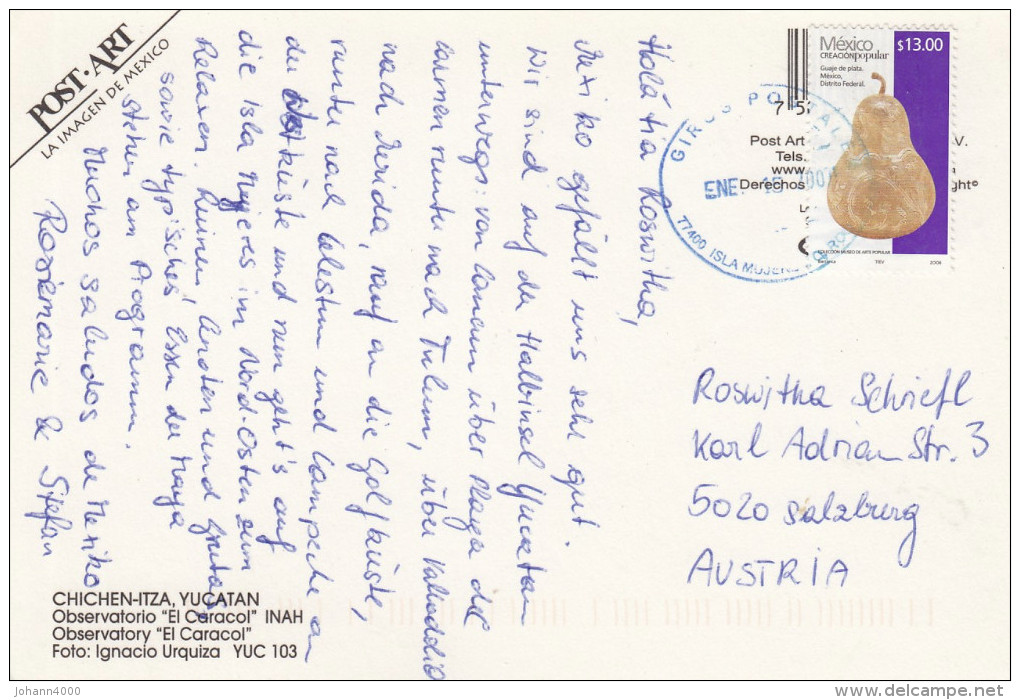 POST·ART
LA IMAGEN DE MEXICO
Holà tia Roswitha,
Mexiko gefällt uns sehr gut.
Wir sind auf der Halbinsel Yucatan
unterwegs: von Cancun über Playa del
Carmen runter nach Tulum, über Valladolid
nach Merida, rauf an die Golfküste,
runter nach Celestun und Campeche an
der Küste und nun geht's auf
die Isla Mujeres im Nord-Osten zum
Relaxen. Ruinen, Cenoten und Grutas
sowie typisches Essen der Maya
stehen am Programm.
Muchos saludos de Mexiko
Rosemarie & Stefan
CHICHEN-ITZA, YUCATAN
Observatorio "El Caracol" INAH
Observatory "El Caracol"
Foto: Ignacio Urquiza YUC 103
México $13.00
CREACIÓN popular
Guaje de plata.
México,
Distrito Federal.
COLECCIÓN MUSEO DE ARTE POPULAR
TIEV 2005
7 5
Post Art V.
Tels.
www
Derechos ght©
GIROS POSTALES
ENE. 15
77400 ISLA MUJERES
Roswitha Schiefl
Karl Adrian Str. 3
5020 Salzburg
AUSTRIA
johann4000
delcampe.net